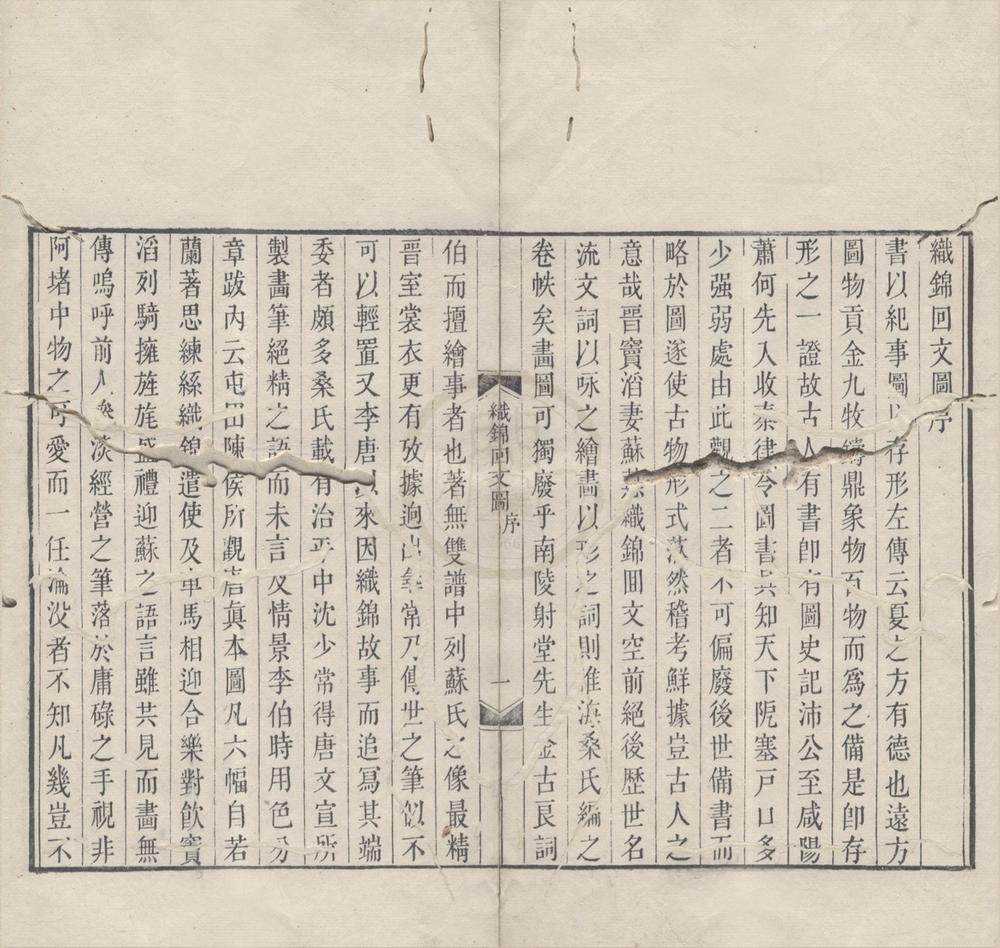 織錦回文圖序
書以紀事圖以存形左傳云夏之方有德也遠方
圖物貢金九牧鑄鼎象物百物而爲之備是卽存
形之一證故古人有書卽有圖史記沛公至咸陽
蕭何先入收秦律令圖書具知天下阨塞戸口多
少强弱處由此觀之二者不可偏廢後世備書而
略於圖遂使古物形式茫然稽考鮮據豈古人之
意哉晉竇滔妻蘇蕙織錦回文空前絕後歷世名
流文詞以咏之繪畫以形之詞則淮海桑氏編之
卷帙矣畫圖可獨廢乎南陵射堂先生金古良詞
織錦回文圖 序 一
伯而擅繪事者也著無雙譜中列蘇氏之像最精
晉室裳衣更有攷據逈出尋常乃傳世之筆似不
可以輕置又李唐以來因織錦故事而追寫其端
委者頗多桑氏載有治平中沈少常得唐文宣所
製畫筆絕精之語而未言及情景李伯時用色分
章跋內云屯田陳侯所觀唐眞本圖凡六幅自若
蘭著思練絲織錦遣使及車馬相迎合樂對飮竇
滔列騎擁旌旄盛禮迎蘇之語言雖共見而畫無
傳嗚呼前人淡經營之筆落於庸碌之手視非
阿堵中物之可愛而一任淪沒者不知凡幾豈不